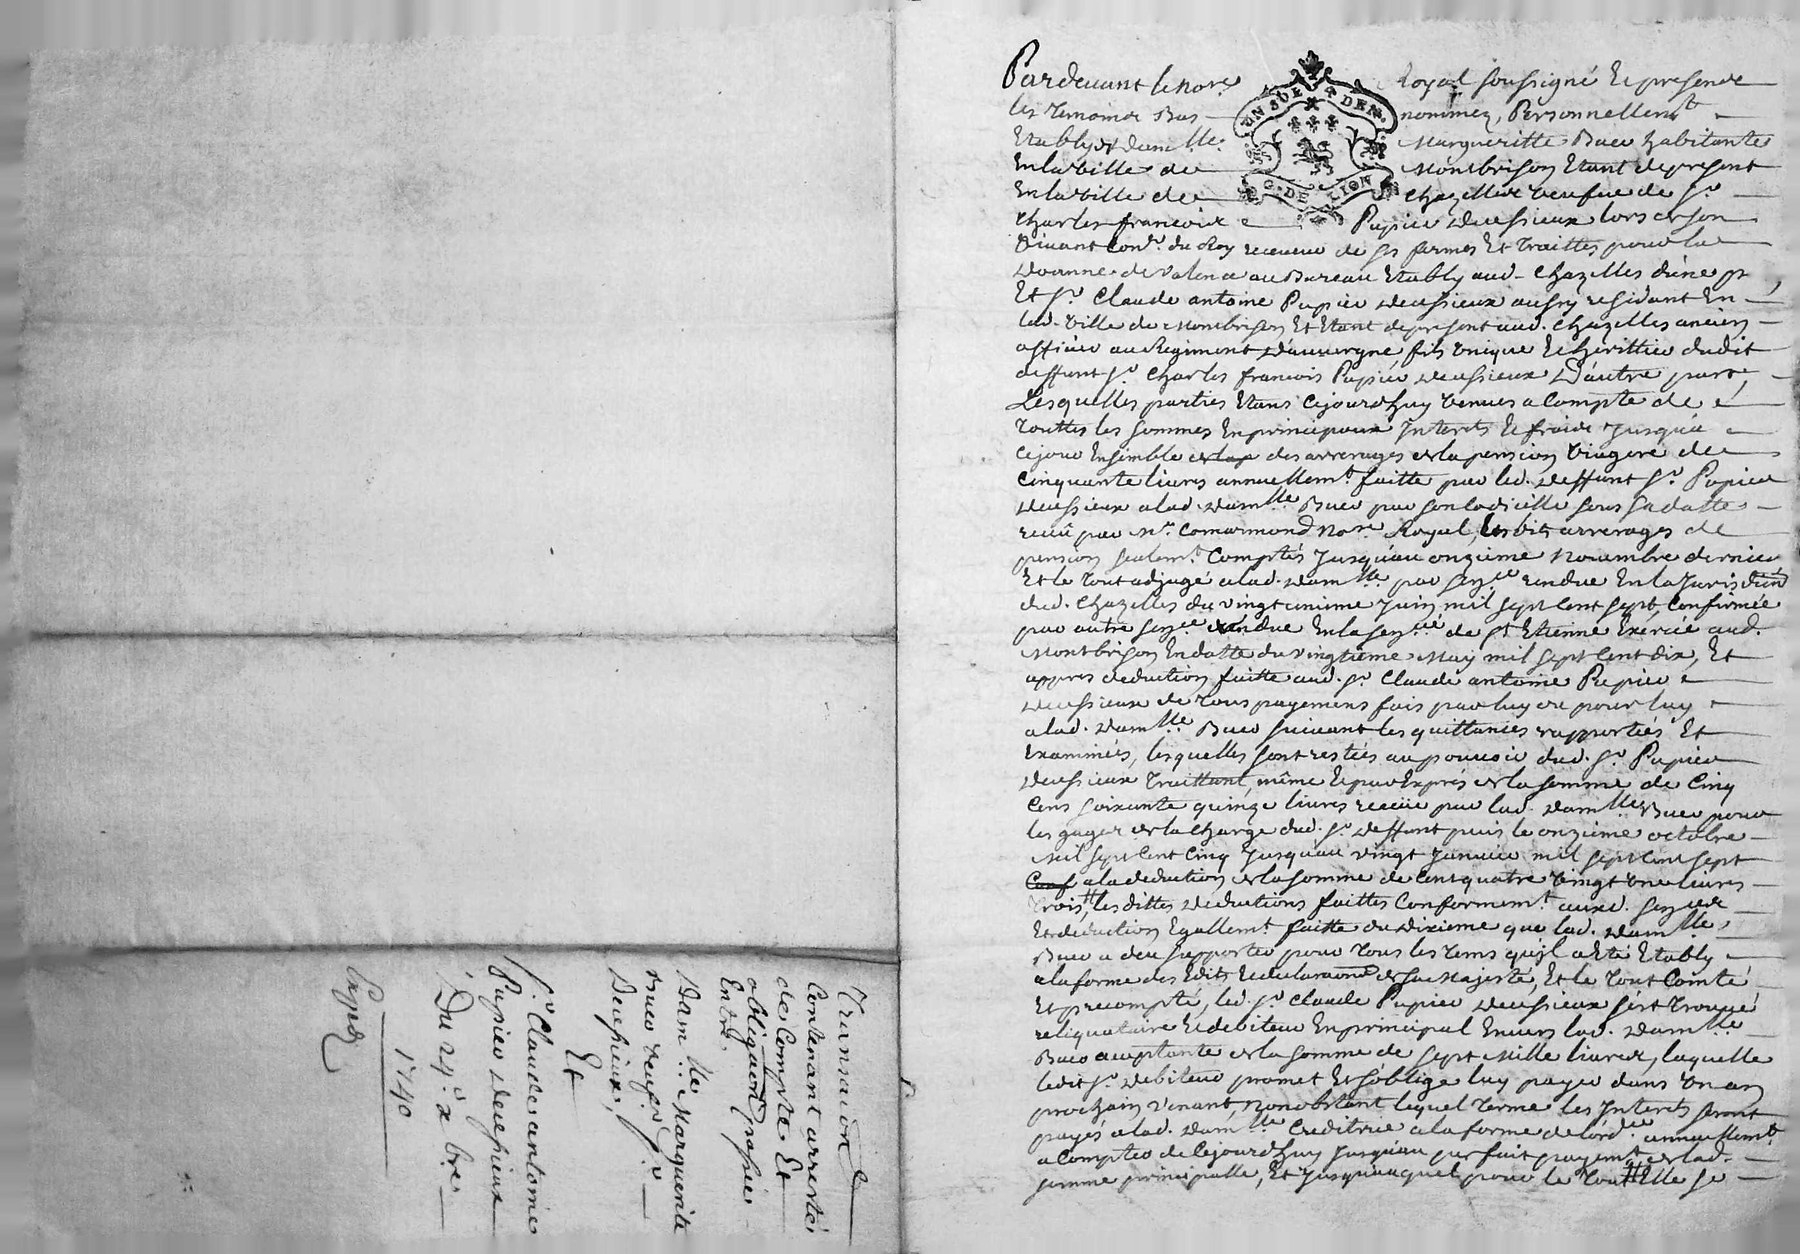 Transaction
Contenant arresté
de Compte Et
obligaōn passée
Entre
Dam.lle Marguerite
Buer veufue Sr.
Deussieux,
Et
Sr. Claude antoine
Papier Deussieux
Du 24.e xbre
1740
Pardeuant le nore Royal soussigné Et presence
les Temoins Bas nommez, Personnellemt
Etablys dam.lle Margueritte Buer habitante
En la ville de Montbrison Etant depresent
En la ville de Chazelles veufue de Sr.
Charles francois Papier Deussieux lors de son
viuant Cond.r du Roy receueur de ses fermes Et Traittes pour la
Doanne de valence au Bureau Etably aud. Chazelles d'une pt
Et Sr. Claude antoine Papier Deussieux aussy residant En
lad. ville de Montbrison Et Etant depresent aud. Chazelles ancien
officier au Regiment D'auuergne, fils vnique Et herittier dudit
deffunt Sr. Charles francois Papier Deussieux D'autre part,
Lesquelles parties Etans Cejourdhuy venues a Compte de
Touttes les sommes En principaux Interets Et fraix Jusqu'a
Cejour Ensemble des arrerages de la pension viagere de
Cinquante liures annuellemt. faitte par led. Deffunt Sr. Papier
Deussieux a lad. Dam.lle Buer par son Codicille sous sa datte
receû par Mr. Comarmond nore. Royal, lesdits arrerages de
pension seulemt. Comptés Jusqu'au onzieme Nouembre dernier
Et le Tout adjugé a lad. Dam.lle par senz.ce rendue En la Jurisdiōn
dud. Chazelles du vingt unieme Juin mil sept Cent sept, Confirmée
par autre senz.ce rendue En la senz.ée de St Etienne Exercée aud.
Montbrison En datte du vingtieme May mil sept Cent dix, Et
appres deduction faitte aud. Sr. Claude antoine Papier
Deussieux de Tous payemens fais par luy ou pour luy
a lad. Dam.lle Buer suiuant les quittances rapportées Et
Examinées, lesquelles sont restées au pouuoir dud. Sr. Papier
Deussieux Traittant, même Et par Exprés de la somme de Cinq
Cens soixante quinze liures receüe par lad. Dam.lle Buer pour
les gages de la charge dud. Sr. Deffunt puis le onzieme octobre
Mil sept Cent Cinq Jusqu'au vingt Januier mil sept Cent sept
a la deduction de la somme de Cent quatre vingt vne liures
Trois s, les dittes Deductions faittes Conformemt. auxd. senz.ces
Et deduction Egallemt. faitte du Dixieme que lad. Dam.lle
Buer a deu supporter pour Tous les Tems qu'il a Eté Etably
a la forme des Edits Et declaraōns de sa Majesté, Et le Tout Comté
Et precompté, led. Sr. Claude Papier Deussieux s'est Trouué
reliquataire Et debiteur En principal Enuers lad. Dam.lle
Buer acceptante de la somme de sept Mille liures, laquelle
ledit Sr. debiteur promet Et s'oblige luy payer dans vn an
prochain venant, nonobstant lequel Terme les Interets seront
payés a lad. Dam.lle Creditrice a la forme de l'ord.ce annuellemt
a Compter de Cejourdhuy Jusqu'au parfait payemt. de lad.
somme principalle, Et Jusqu'auquel pour le Tout Elle se